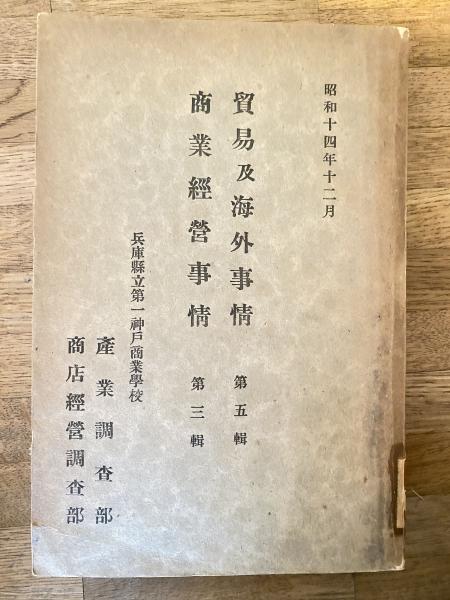 昭和十四年十二月
貿易及海外事情 第五輯
商業經營事情 第三輯
兵庫縣立第一神戸商業學校
產業調査部
商店經營調査部